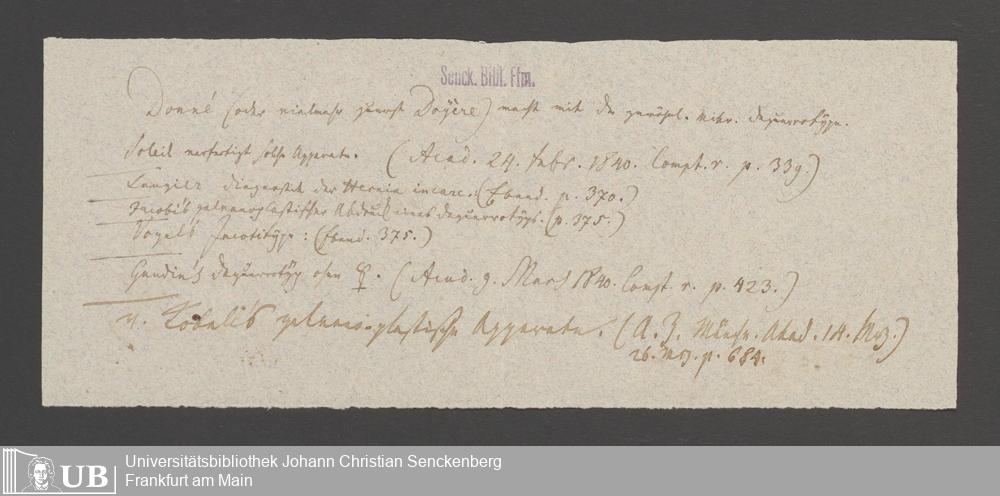 Senck. Bibl. Ffm.
Donné (oder vielmehr zuerst Doyère) macht mit der gewöhnl. mikr. Daguerrotype.
Soleil verfertigt solche Apparate. (Acad. 24. Febr. 1840. Compt. r. p. 339.)
Laugier Diagnostik der Hernia incarc.: (Ebend. p. 370.)
Jacobi's galvanoplastischer Abdruck eines Daguerrotyps. (p. 375.)
Vogel's : (Ebend. 375.)
Gaudin's Daguerrotyp ohne ☿. (Acad. 9. Mars 1840. Compt. r. p. 423.)
v. Kobell's galvano-plastische Apparate. (A. Z. Münchn. Akad. 14. Mrz.)
26. Mrz. p. 684.
UB
Universitätsbibliothek Johann Christian Senckenberg
Frankfurt am Main